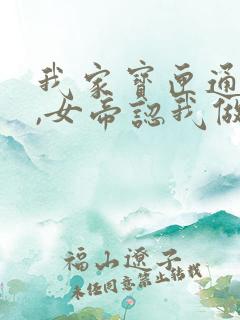 我家寶匣通
,女帝認我做
福山遼子
未經同意禁止轉載